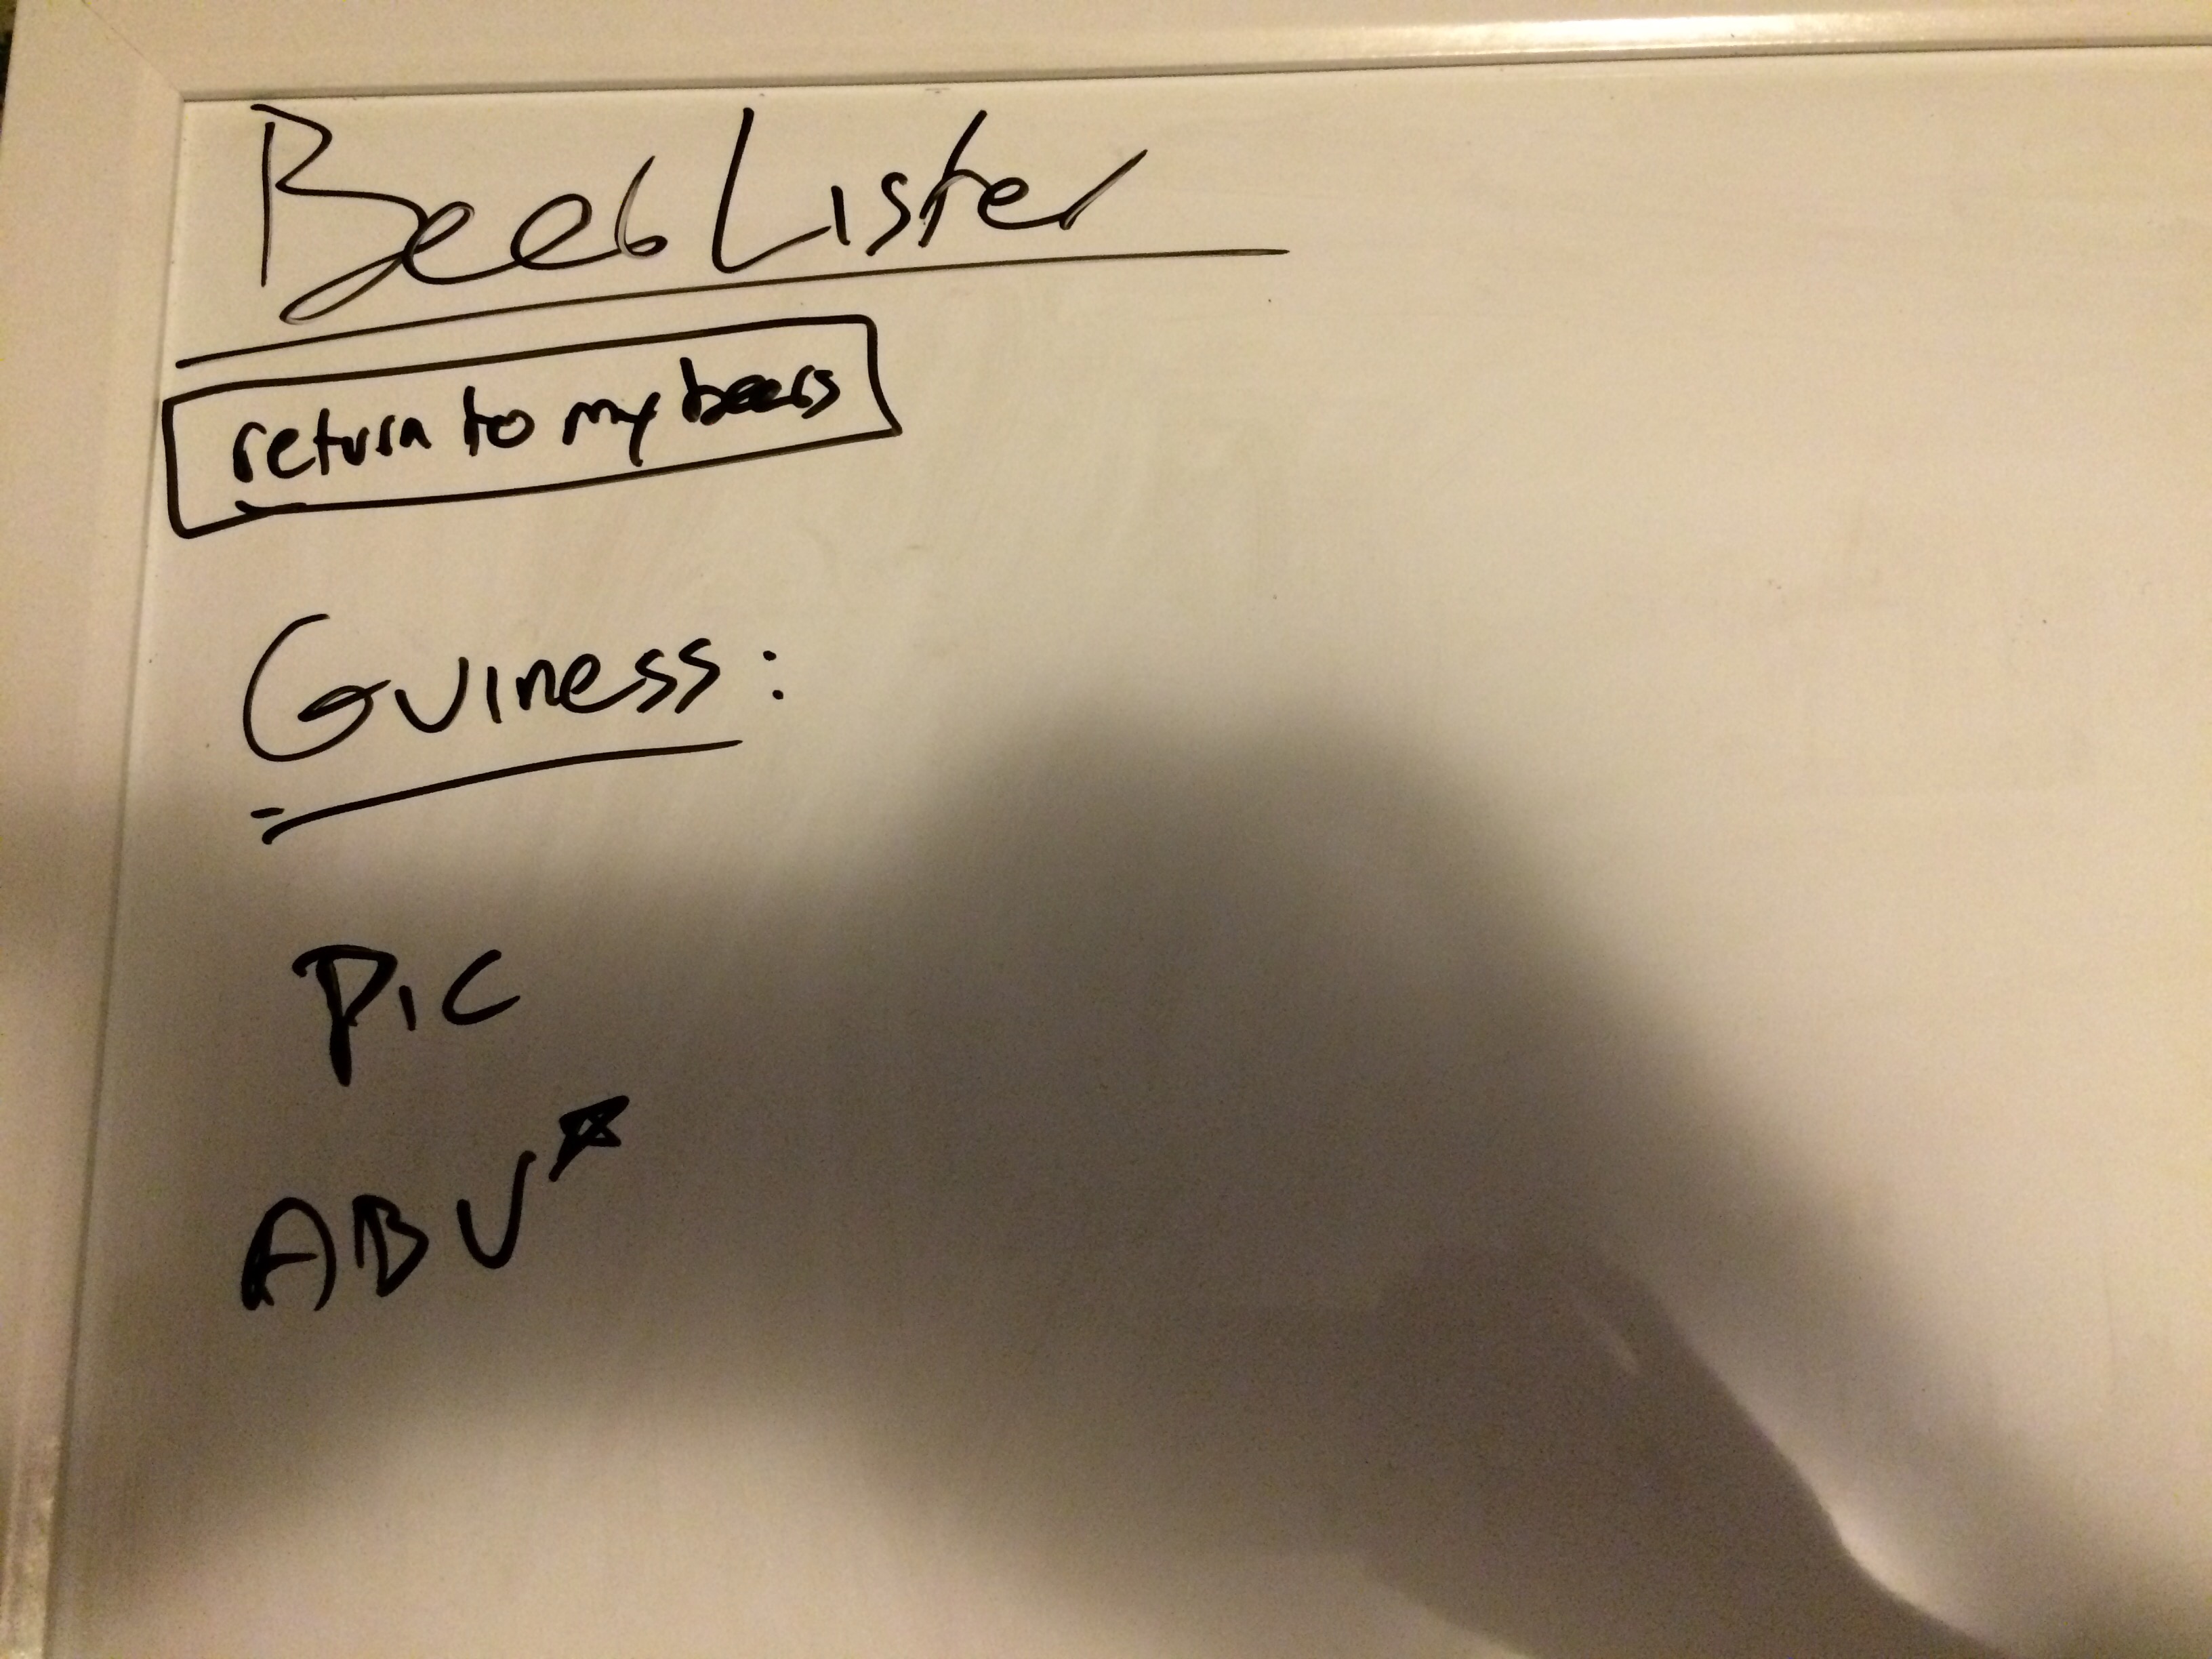 Beer Lister
return to my beers
Guiness:
PIC
ABV*